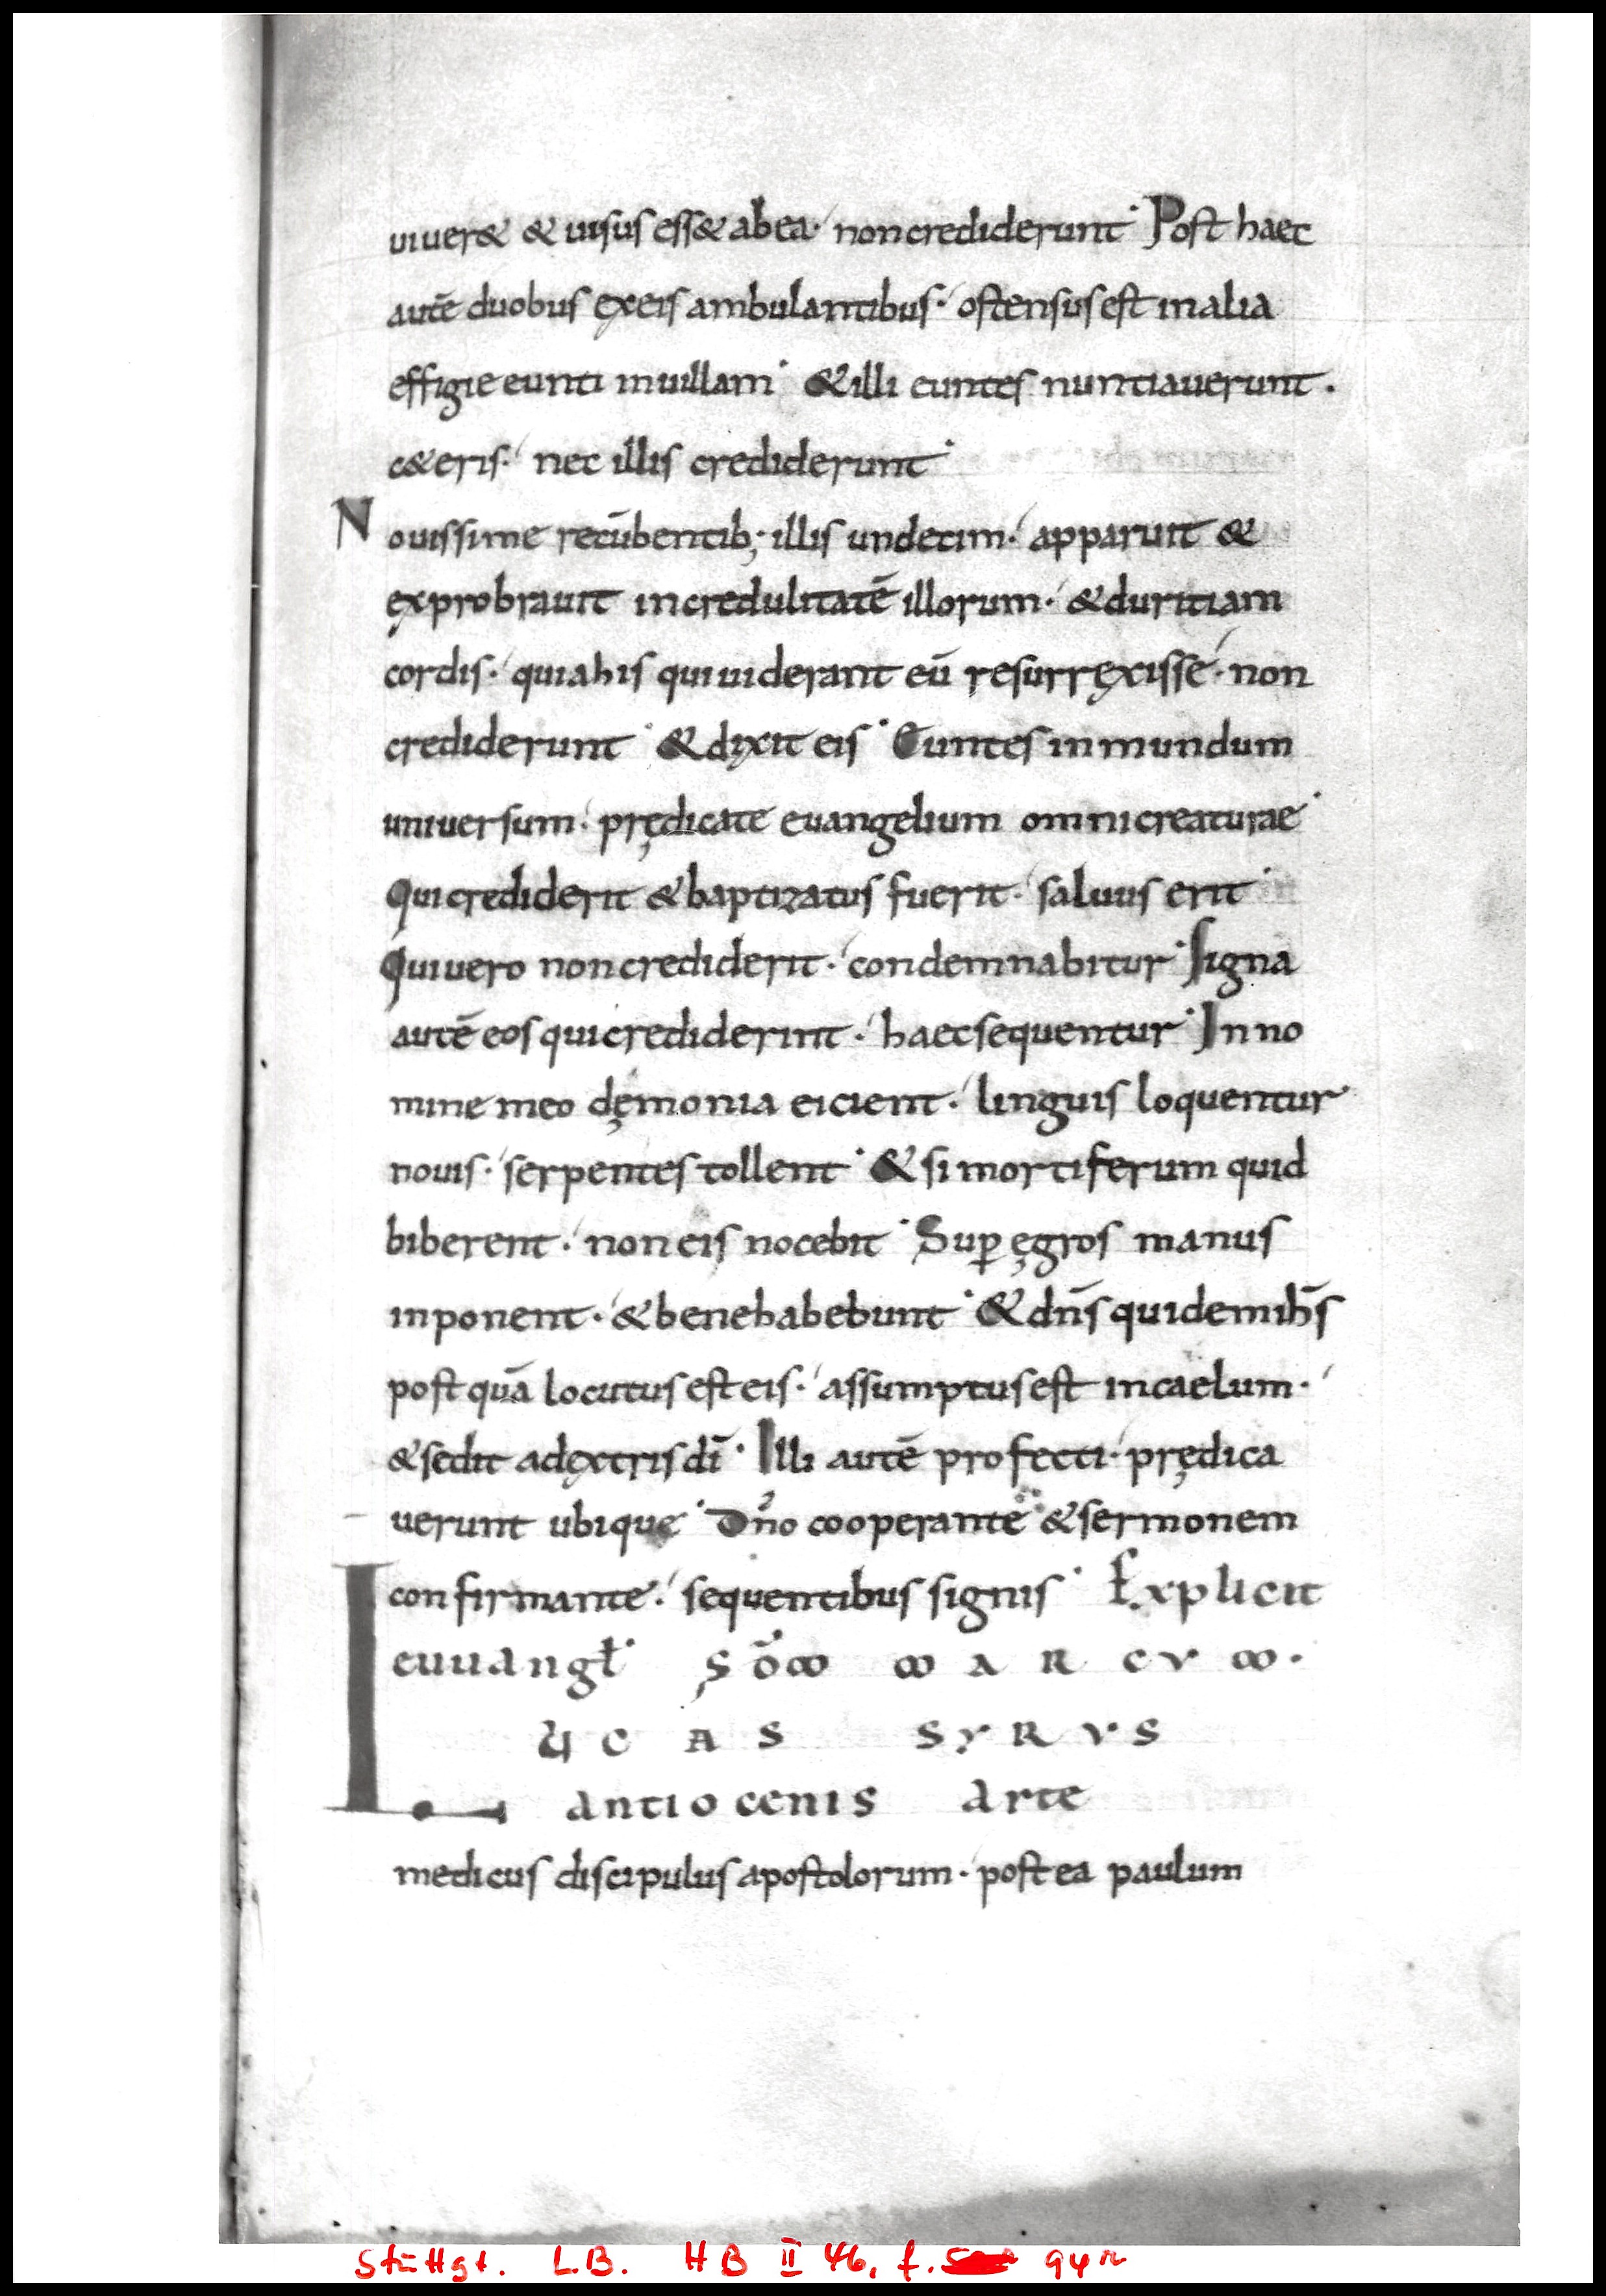 uiuer& & uisus ess& ab ea· non crediderunt· Post haec
autē duobus ex eis ambulantibus· ostensus est in alia
effigie eunti in uillam· & illi euntes nuntiauerunt·
c&eris· nec illis crediderunt·
Nouissime recūbentib; illis undecim· apparuit &
exprobrauit incredulitatē illorum· & duritiam
cordis· quia his qui uiderant eū resurrexisse· non
crediderunt· & dixit eis· Euntes in mundum
uniuersum· prędicate euangelium omni creaturae·
Qui crediderit & baptizatus fuerit· saluus erit·
Qui uero non crediderit· condemnabitur· Signa
autē eos qui crediderint· haec sequentur· In no
mine meo dęmonia eicient· linguis loquentur
nouis· serpentes tollent· & si mortiferum quid
biberent· non eis nocebit· Suꝑ ęgros manus
inponent· & bene habebunt· & dn̄s quidem ih̄s
post quā locutus est eis· assumptus est in caelum·
& sedit a dextris dī· Illi autē profecti· prędica
uerunt ubique· Dn̄o cooperante & sermonem
confirmante· sequentibus signis· Explicit
euuangł· SC̄DM MARCVM·
LUCAS SYRVS
antiocenis arte
medicus discipulus apostolorum· postea paulum
Stuttgt. L.B. HB II 46, f. 94r